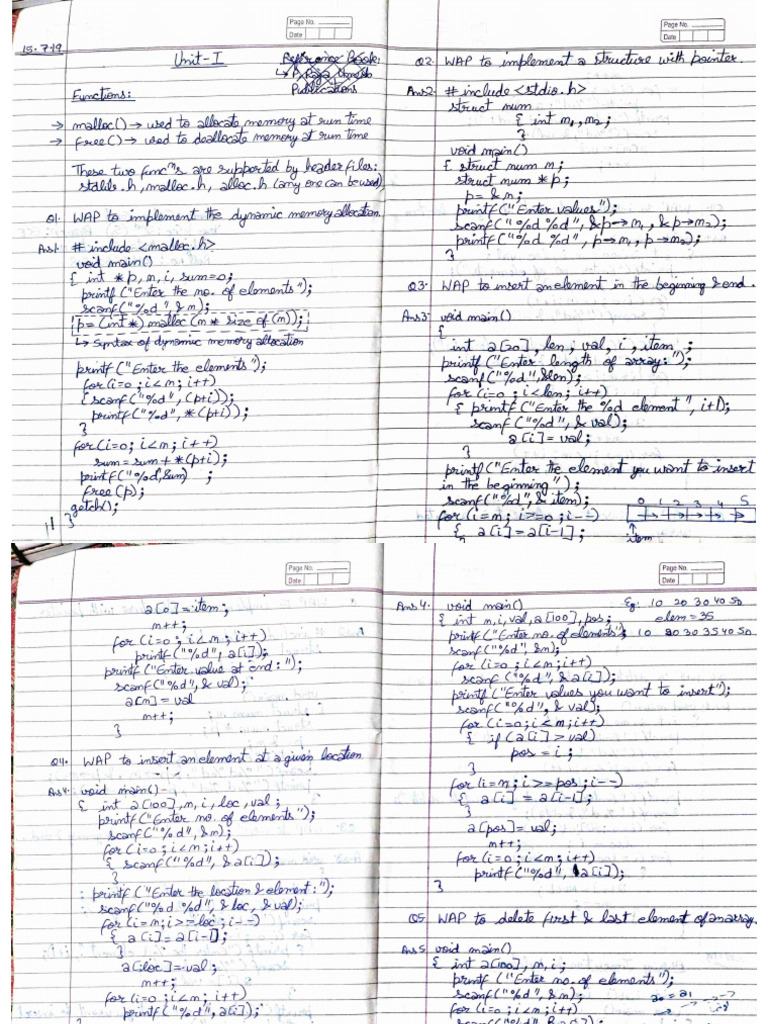 Page No.
Date
15.7.19
Unit-I
Reference Book:
Publications
Functions:
→ malloc() → used to allocate memory at run time
→ free() → used to deallocate memory at run time
These two funcⁿs are supported by header files:
stdlib.h, malloc.h, alloc.h (any one can be used)
Q1. WAP to implement the dynamic memory allocation.
Ans1. # include <malloc.h>
void main()
{ int *p, n, i, sum=0;
printf("Enter the no. of elements");
scanf("%d", &n);
p=(int*) malloc(n* size of(n));
↳ Syntax of dynamic memory allocation
printf("Enter the elements");
for(i=0; i<n; i++)
{ scanf("%d", (p+i));
printf("%d", *(p+i));
}
for(i=0; i<n; i++)
sum=sum+*(p+i);
printf("%d", sum) ;
free(p);
getch();
}
Page No.
Date
Q2. WAP to implement a structure with pointer.
Ans2. # include <stdio.h>
struct num
{ int m₁,m₂;
}
void main()
{ struct num n;
struct num *p;
p=&n;
printf("Enter values");
scanf("%d %d", &p→m₁, &p→m₂);
printf("%d %d", p→m₁, p→m₂);
}
Q3. WAP to insert an element in the beginning & end.
Ans3. void main()
{
int a[50], len, val, i, item ;
printf("Enter length of array:");
scanf("%d", &len);
for(i=0; i<len; i++)
{ printf("Enter the %d element", i+1);
scanf("%d", &val);
a[i]=val;
}
printf("Enter the element you want to insert
in the beginning");
scanf("%d", &item);
for(i=n; i>=0; i--)
0 1 2 3 4 5
{ a[i]=a[i-1];
item
Page No.
Date
a[0]=item;
n++;
for(i=0; i<n; i++)
printf("%d", a[i]);
printf("Enter value at end:");
scanf("%d", &val);
a[n]=val
n++;
}
Q4. WAP to insert an element at a given location
Ans4. void main()
{ int a[100], n, i, loc, val;
printf("Enter no. of elements");
scanf("%d", &n);
for(i=0; i<n; i++)
{ scanf("%d", &a[i]);
}
printf("Enter the location & element:");
scanf("%d %d", &loc, &val);
for(i=n; i>=loc; i--)
{ a[i]=a[i-1];
}
a[loc]=val;
n++;
for(i=0; i<n; i++)
printf("%d", a[i]);
Page No.
Date
Ans4. void main()
Eg: 10 20 30 40 50
{ int n, i, val, a[100], pos;
elem=35
printf("Enter no. of elements");
10 20 30 35 40 50
scanf("%d", &n);
for(i=0; i<n; i++)
scanf("%d", &a[i]);
printf("Enter values you want to insert");
scanf("%d", &val);
for(i=0; i<n; i++)
{ if(a[i]>val)
pos=i;
}
for(i=n; i>=pos; i--)
{ a[i]=a[i-1];
}
a[pos]=val;
n++;
for(i=0; i<n; i++)
printf("%d", a[i]);
}
Q5. WAP to delete first & last element of an array.
Ans5. void main()
{ int a[100], n, i;
printf("Enter no. of elements");
scanf("%d", &n);
a0=a1
for(i=0; i<n; i++)
scanf("%d", &a[i]);